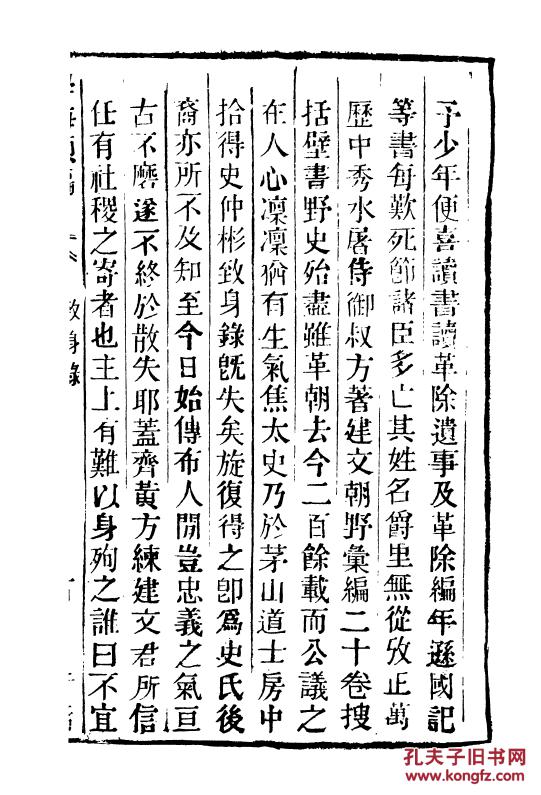 予少年便喜讀書讀革除遺事及革除編年遜國記
等書每歎死節諸臣多亡其姓名爵里無從攷正萬
歷中秀水屠侍御叔方著建文朝野彙編二十卷搜
括壁書野史殆盡雖革朝去今二百餘載而公議之
在人心凛凛猶有生氣焦太史乃於茅山道士房中
拾得史仲彬致身錄旣失矣旋復得之卽爲史氏後
裔亦所不及知至今日始傳布人間豈忠義之氣亘
古不磨遂不終於散失耶蓋齊黃方練建文君所信
任有社稷之寄者也主上有難以身殉之誰曰不宜
致身錄
孔夫子旧书网
www.kongfz.com